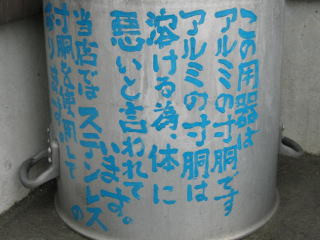 この用器は
アルミの寸胴です
アルミの寸胴は
溶ける為、体に
悪いと言われて
います。
当店ではステンレスの
寸胴を使用して
おります。